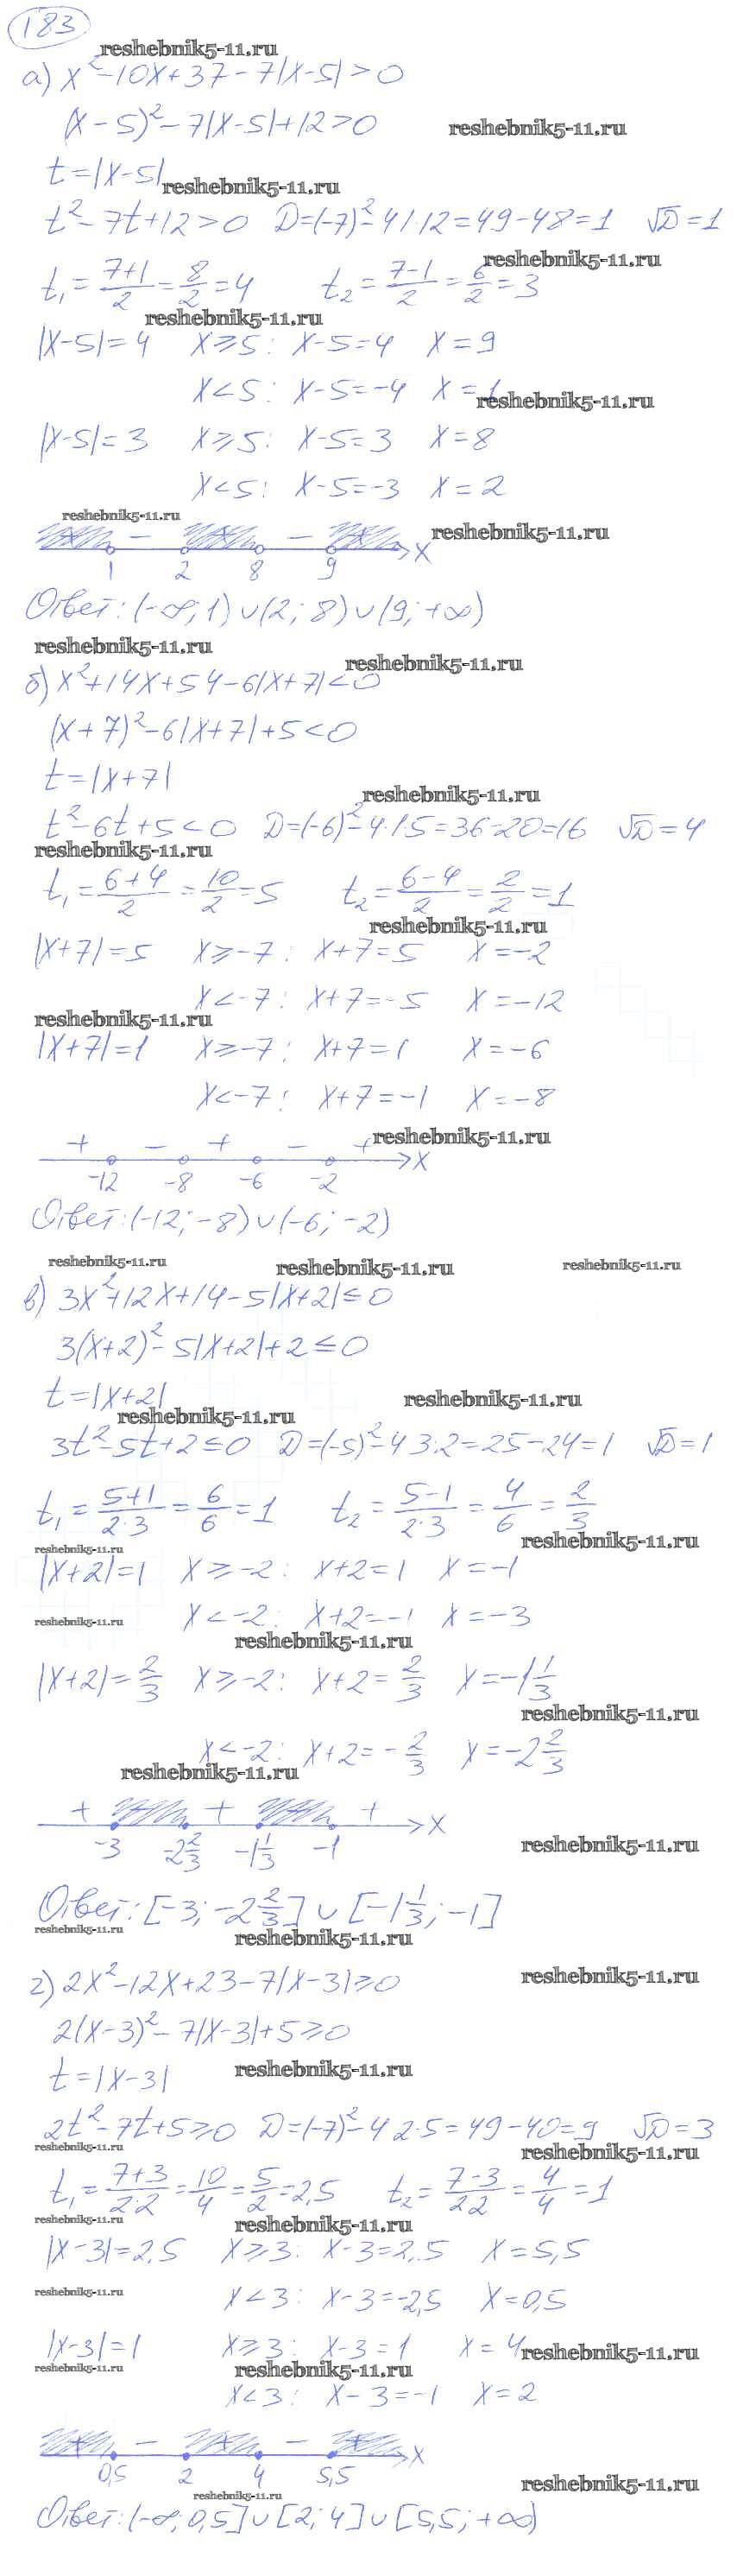 183
reshebnik5-11.ru
а) x²-10x+37-7|x-5|>0
(x-5)²-7|x-5|+12>0 reshebnik5-11.ru
t=|x-5| reshebnik5-11.ru
t²-7t+12>0 D=(-7)²-4·1·12=49-48=1 √D=1
reshebnik5-11.ru
t₁=(7+1)/2=8/2=4 t₂=(7-1)/2=6/2=3
reshebnik5-11.ru
|x-5|=4 x≥5: x-5=4 x=9
x<5: x-5=-4 x=1 reshebnik5-11.ru
|x-5|=3 x≥5: x-5=3 x=8
x<5: x-5=-3 x=2
reshebnik5-11.ru
+ - + - + x reshebnik5-11.ru
1 2 8 9
Ответ: (-∞;1)∪(2;8)∪(9;+∞)
reshebnik5-11.ru reshebnik5-11.ru
б) x²+14x+54-6|x+7|<0
(x+7)²-6|x+7|+5<0
t=|x+7|
reshebnik5-11.ru
t²-6t+5<0 D=(-6)²-4·1·5=36-20=16 √D=4
reshebnik5-11.ru
t₁=(6+4)/2=10/2=5 t₂=(6-4)/2=2/2=1
reshebnik5-11.ru
|x+7|=5 x≥-7: x+7=5 x=-2
x<-7: x+7=-5 x=-12
reshebnik5-11.ru
|x+7|=1 x≥-7: x+7=1 x=-6
x<-7: x+7=-1 x=-8
+ - + - + x reshebnik5-11.ru
-12 -8 -6 -2
Ответ: (-12;-8)∪(-6;-2)
reshebnik5-11.ru reshebnik5-11.ru reshebnik5-11.ru
в) 3x²+12x+14-5|x+2|≤0
3(x+2)²-5|x+2|+2≤0
t=|x+2| reshebnik5-11.ru
reshebnik5-11.ru
3t²-5t+2≤0 D=(-5)²-4·3·2=25-24=1 √D=1
t₁=(5+1)/(2·3)=6/6=1 t₂=(5-1)/(2·3)=4/6=2/3
reshebnik5-11.ru reshebnik5-11.ru
|x+2|=1 x≥-2: x+2=1 x=-1
reshebnik5-11.ru x<-2: x+2=-1 x=-3
reshebnik5-11.ru
|x+2|=2/3 x≥-2: x+2=2/3 x=-1 1/3
reshebnik5-11.ru
x<-2: x+2=-2/3 x=-2 2/3
reshebnik5-11.ru
+ - + - + x reshebnik5-11.ru
-3 -2 2/3 -1 1/3 -1
Ответ: [-3;-2 2/3]∪[-1 1/3;-1]
reshebnik5-11.ru reshebnik5-11.ru
г) 2x²-12x+23-7|x-3|≥0 reshebnik5-11.ru
2(x-3)²-7|x-3|+5≥0
t=|x-3| reshebnik5-11.ru
2t²-7t+5≥0 D=(-7)²-4·2·5=49-40=9 √D=3
reshebnik5-11.ru reshebnik5-11.ru
t₁=(7+3)/(2·2)=10/4=5/2=2,5 t₂=(7-3)/(2·2)=4/4=1
reshebnik5-11.ru reshebnik5-11.ru
|x-3|=2,5 x≥3: x-3=2,5 x=5,5
reshebnik5-11.ru x<3: x-3=-2,5 x=0,5
|x-3|=1 x≥3: x-3=1 x=4 reshebnik5-11.ru
reshebnik5-11.ru reshebnik5-11.ru
x<3: x-3=-1 x=2
+ - + - + x
0,5 2 4 5,5 reshebnik5-11.ru
reshebnik5-11.ru
Ответ: (-∞;0,5]∪[2;4]∪[5,5;+∞)